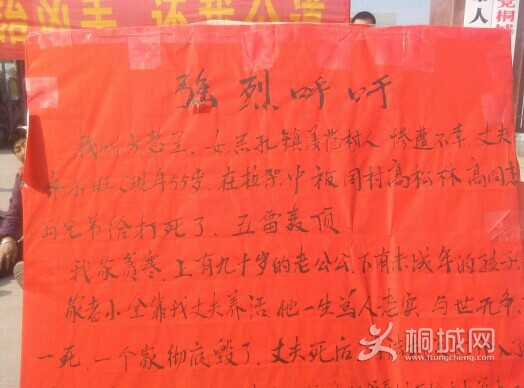 治凶手 还我公道
人
党桐城
强烈呼吁
我叫方 兰、女、孔镇美范村人 惨遭不幸、丈夫
现年55岁、在拉架中被同村高松林、高同
兄弟给打死了、五雷轰顶
我家贫寒、上有九十岁的老公公、下有未成年的孩子
家老小全靠我丈夫养活、他一生为人老实、与世无争、
一死、一个家彻底毁了、丈夫死后
桐城网
www.itongcheng.com